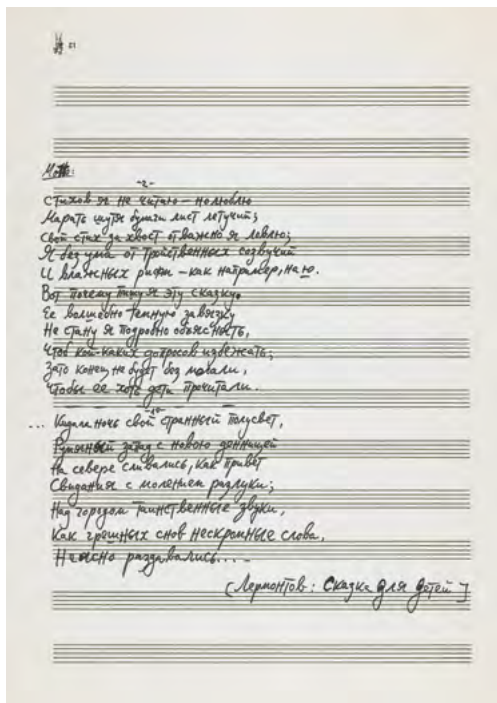 21
Motto:
-2-
Стихов я не читаю – но люблю
Марать шутя бумаги лист летучий;
Свой стих за хвост отважно я ловлю;
Я без ума от тройственных созвучий
И влажных рифм – как например, на ю.
Вот почему пишу я эту сказку.
Ее волшебно темную завязку
Не стану я подробно объяснять,
Чтоб кой-каких допросов избежать;
Зато конец не будет без морали,
Чтобы ее хоть дети прочитали.
... Кидала ночь свой странный полусвет,
Румяный запад с новою денницей
На севере сливались, как привет
Свидания с молением разлуки;
Над городом таинственные звуки,
Как грешных снов нескромные слова,
Неясно раздавались....
[Лермонтов: Сказка для детей]